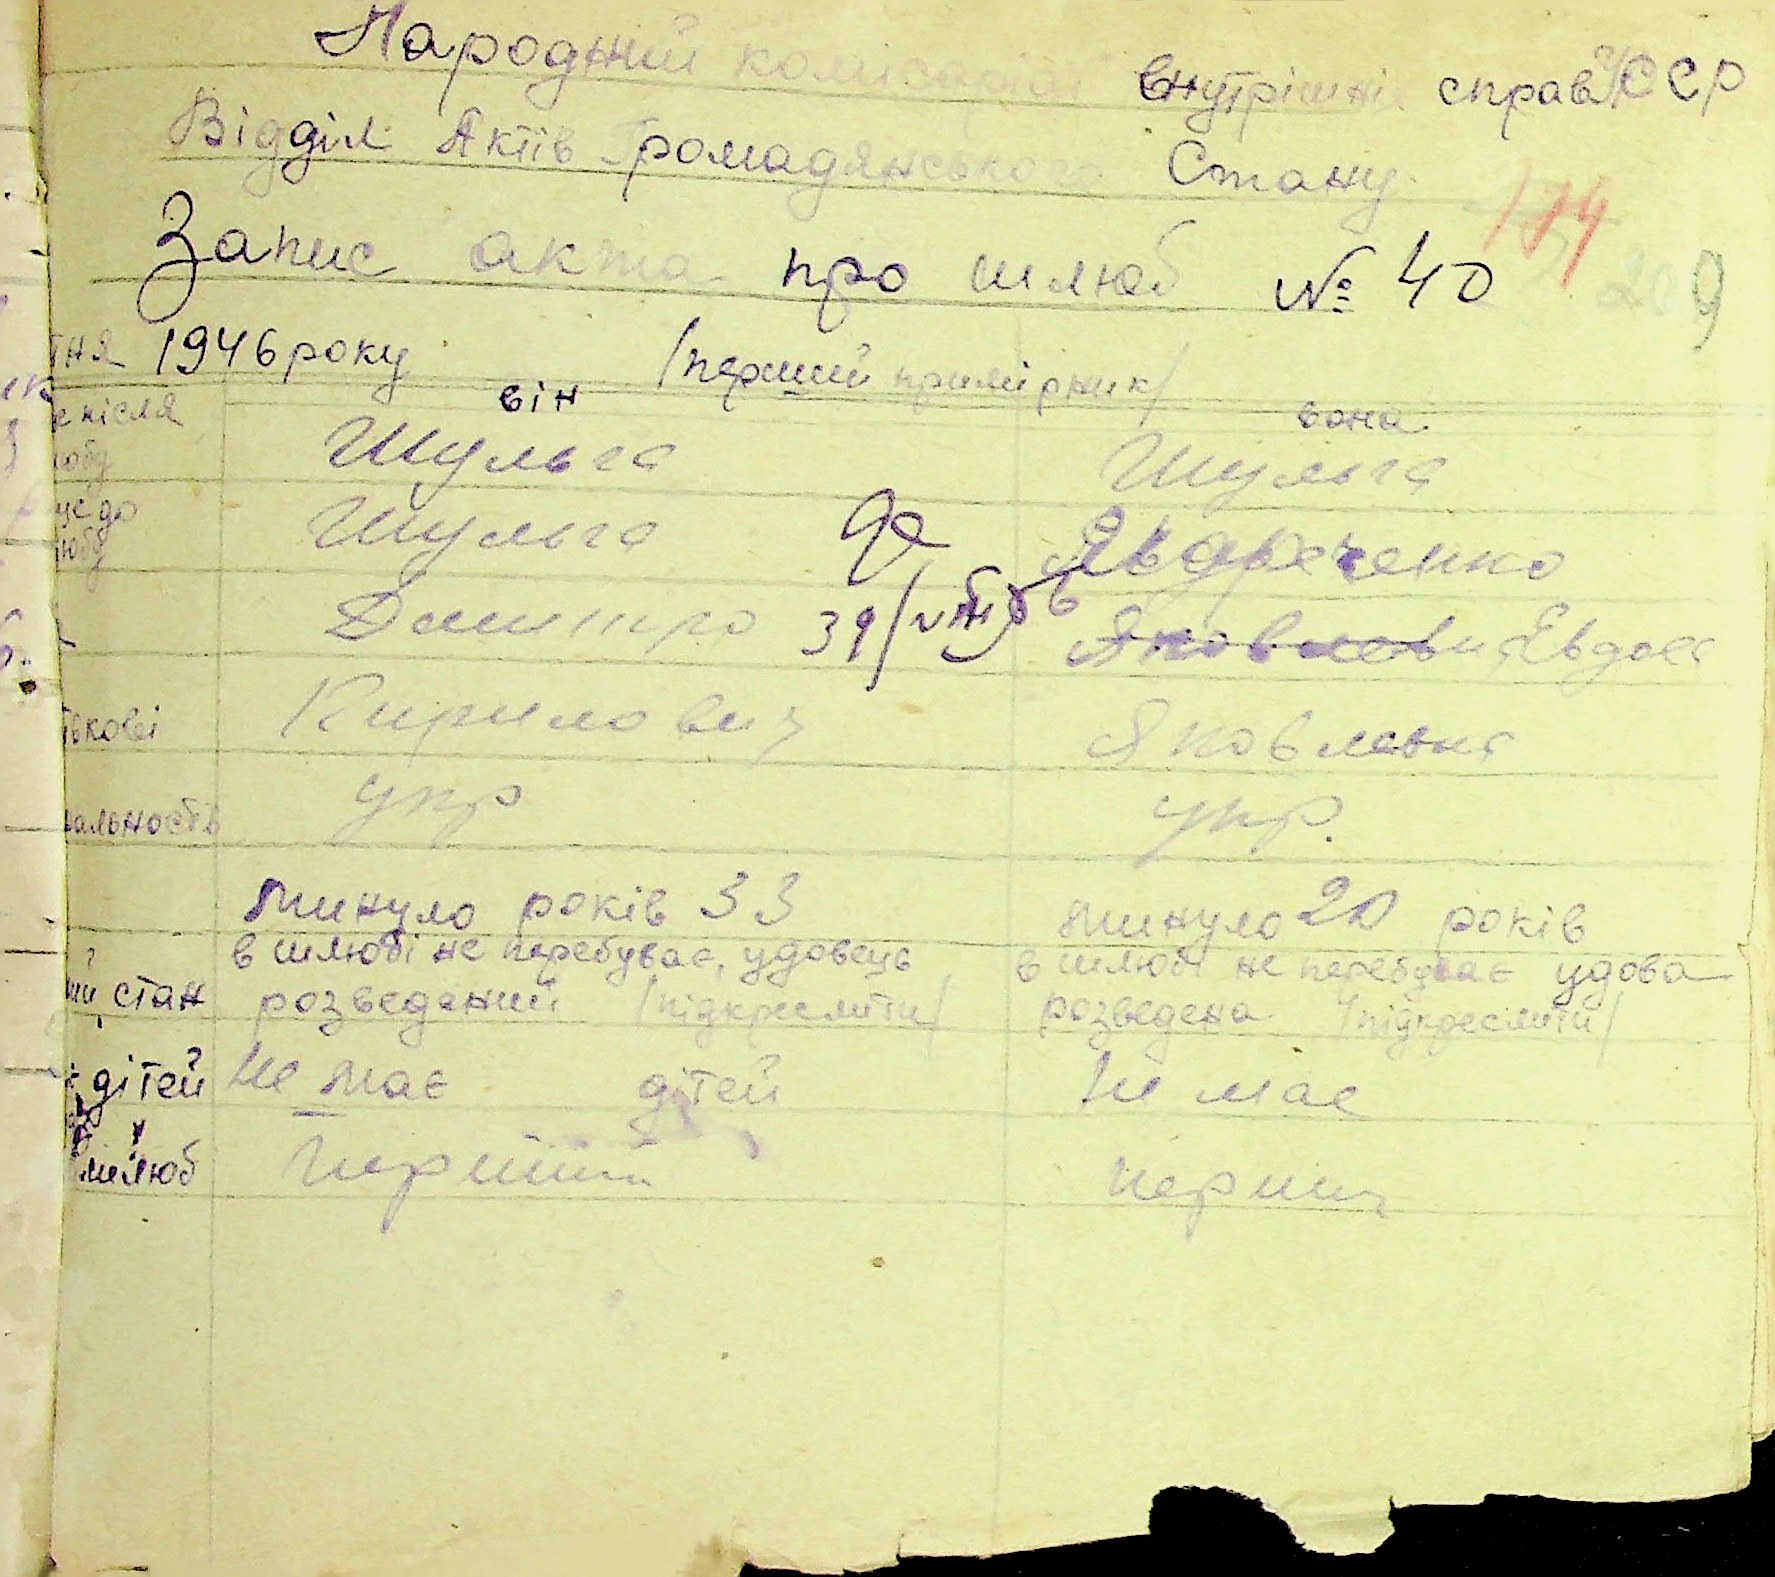 Народний комісаріат внутрішніх справ УССР
Відділ Актів Громадянського Стану
174
Запис акта про шлюб № 40
209
тня 1946 року /перший примірник/
він вона
е після
юбу Шульга Шульга
ще до
юбу Шульга
Дмитро Явдоха
ькові Кирилович Яковлевна
альность укр укр.
минуло років 33 минуло 20 років
в шлюбі не перебуває, удовець в шлюбі не перебуває удова
ий стан розведений /підкреслити/ розведена /підкреслити/
дітей не має дітей не має
шлюб перший перший